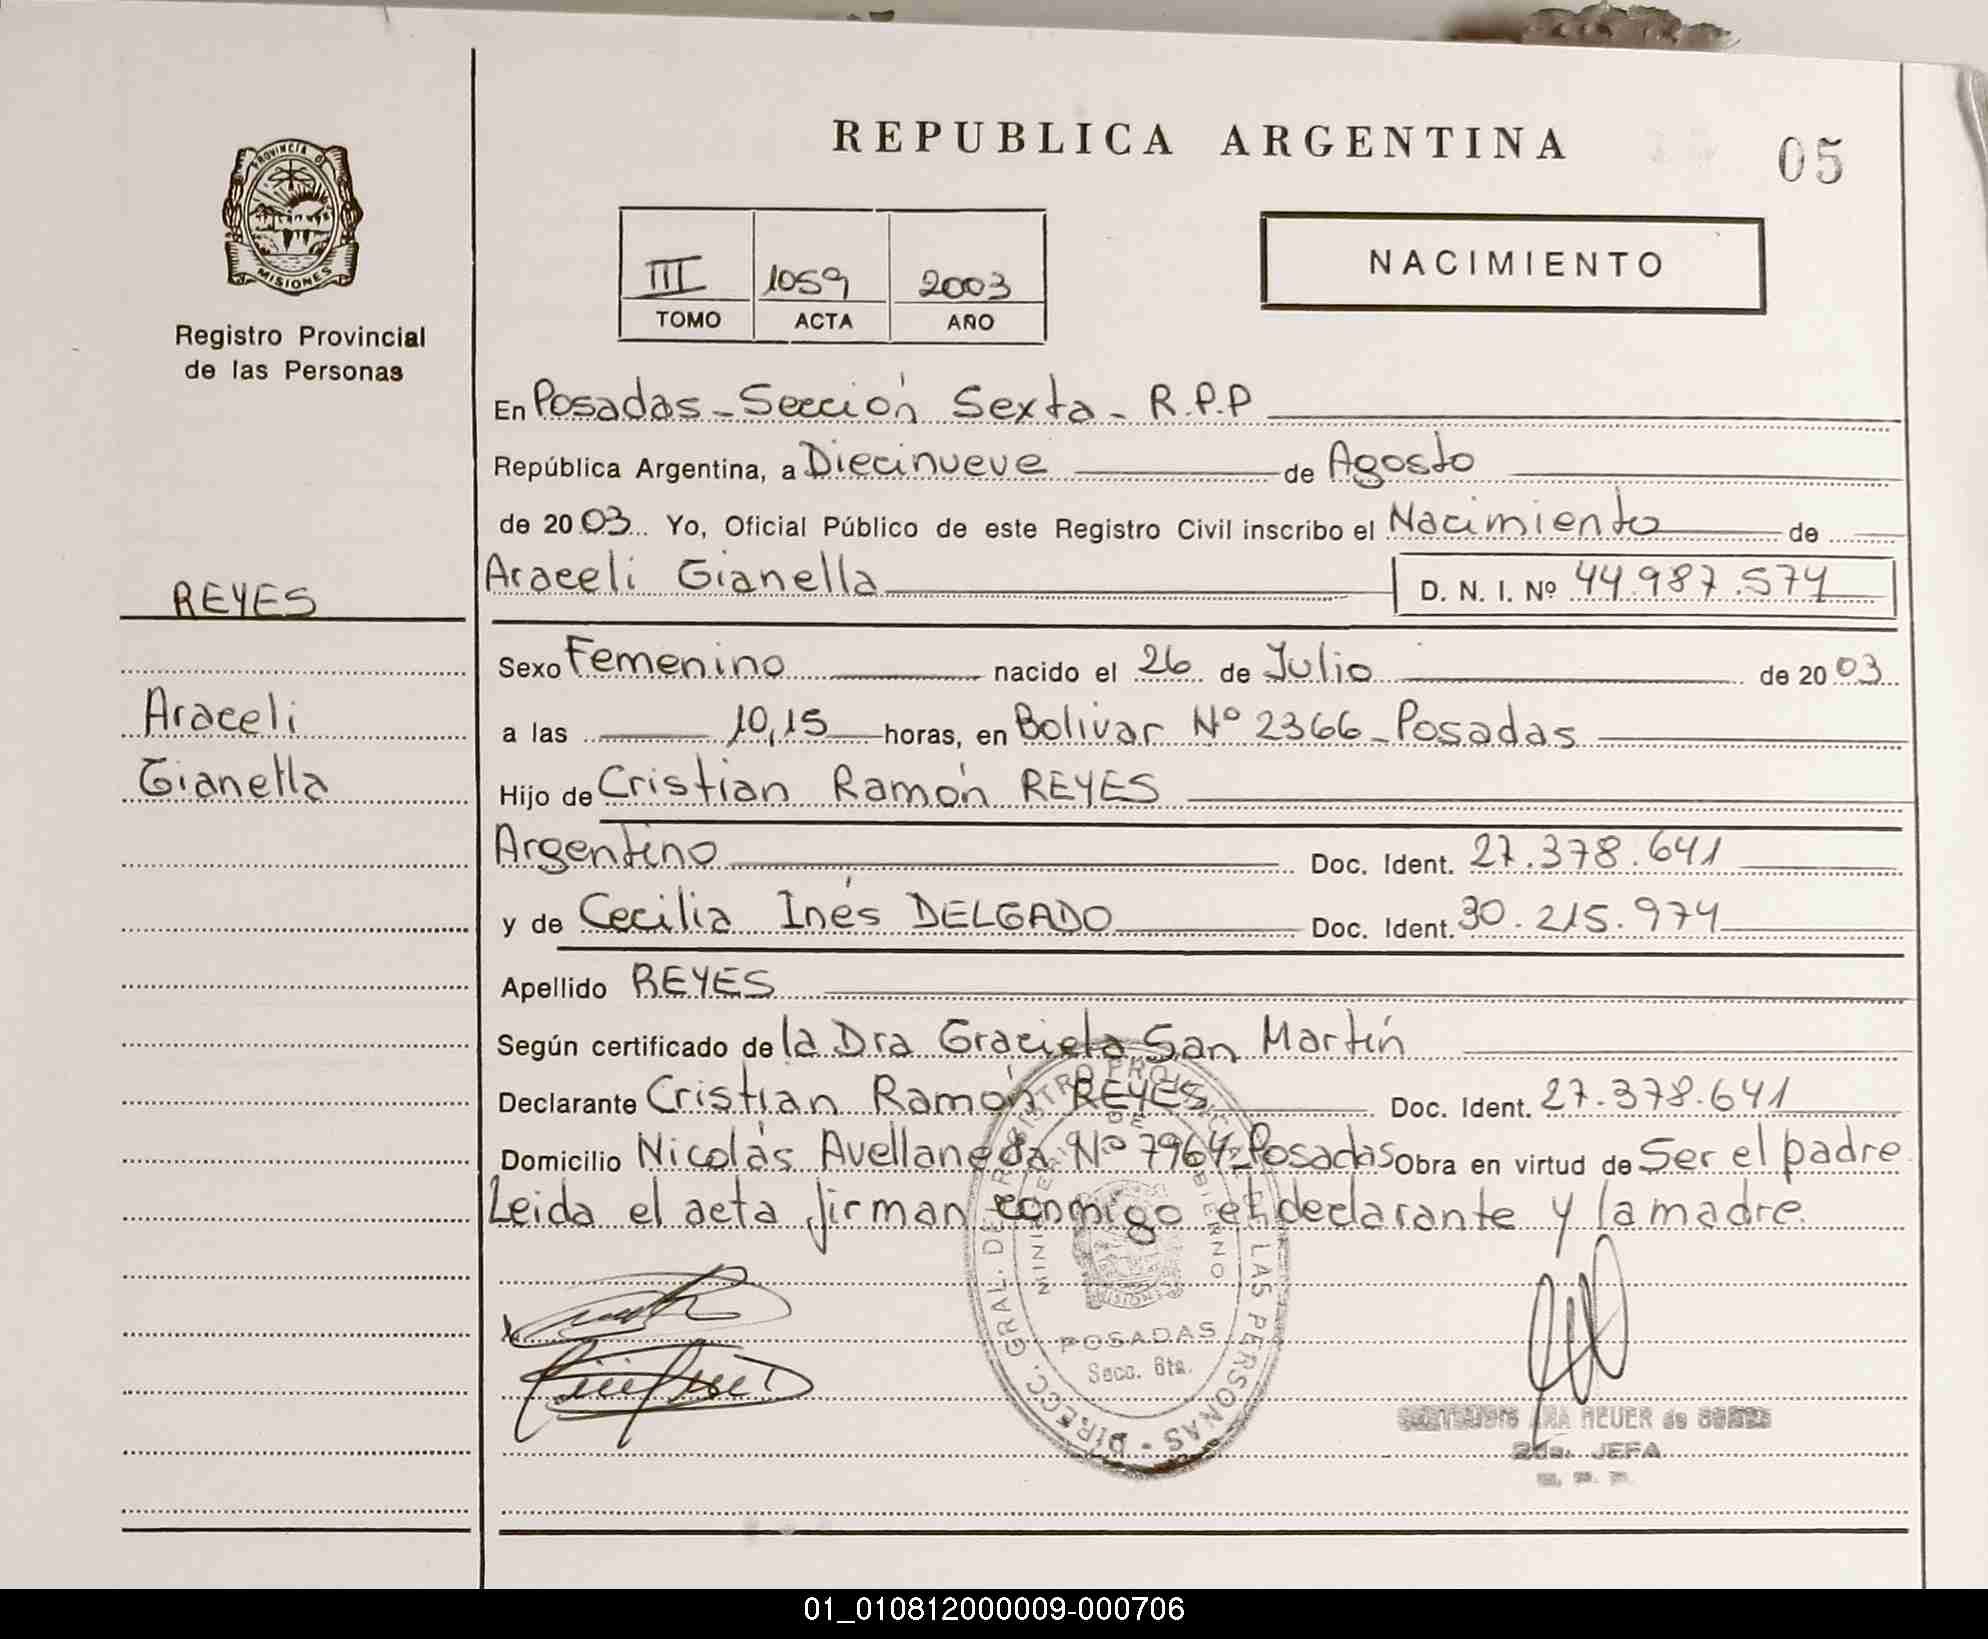 REPUBLICA ARGENTINA
05
PROVINCIA DE
MISIONES
Registro Provincial
de las Personas
III 1059 2003
TOMO ACTA AÑO
NACIMIENTO
En Posadas - Sección Sexta - R.P.P
República Argentina, a Diecinueve de Agosto
de 2003 Yo, Oficial Público de este Registro Civil inscribo el Nacimiento de
Araceli Gianella D. N. I. Nº 44.987.574
REYES
Araceli
Gianella
Sexo Femenino nacido el 26 de Julio de 2003
a las 10,15 horas, en Bolivar Nº 2366 - Posadas
Hijo de Cristian Ramón REYES
Argentino Doc. Ident. 27.378.641
y de Cecilia Inés DELGADO Doc. Ident. 30.215.974
Apellido REYES
Según certificado de la Dra Graciela San Martín
Declarante Cristian Ramón REYES Doc. Ident. 27.378.641
Domicilio Nicolás Avellaneda Nº 7964 - Posadas Obra en virtud de Ser el padre
Leida el acta firman conmigo el declarante y la madre.
DIRECC. GRAL. DE REGISTRO PROVINCIAL DE LAS PERSONAS
MINISTERIO DE GOBIERNO
MISIONES
POSADAS
Secc. 6ta.
ANA REUER de
2da. JEFA
01_010812000009-000706